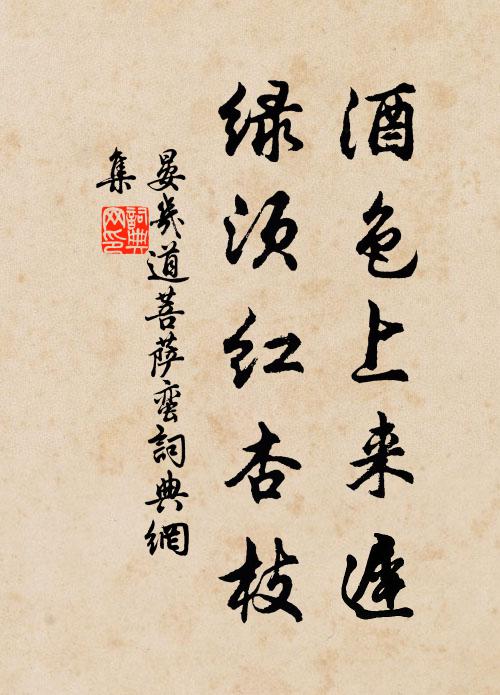 酒色上来迟
绿须红杏枝
晏几道菩萨蛮词典网
集
詞典网印